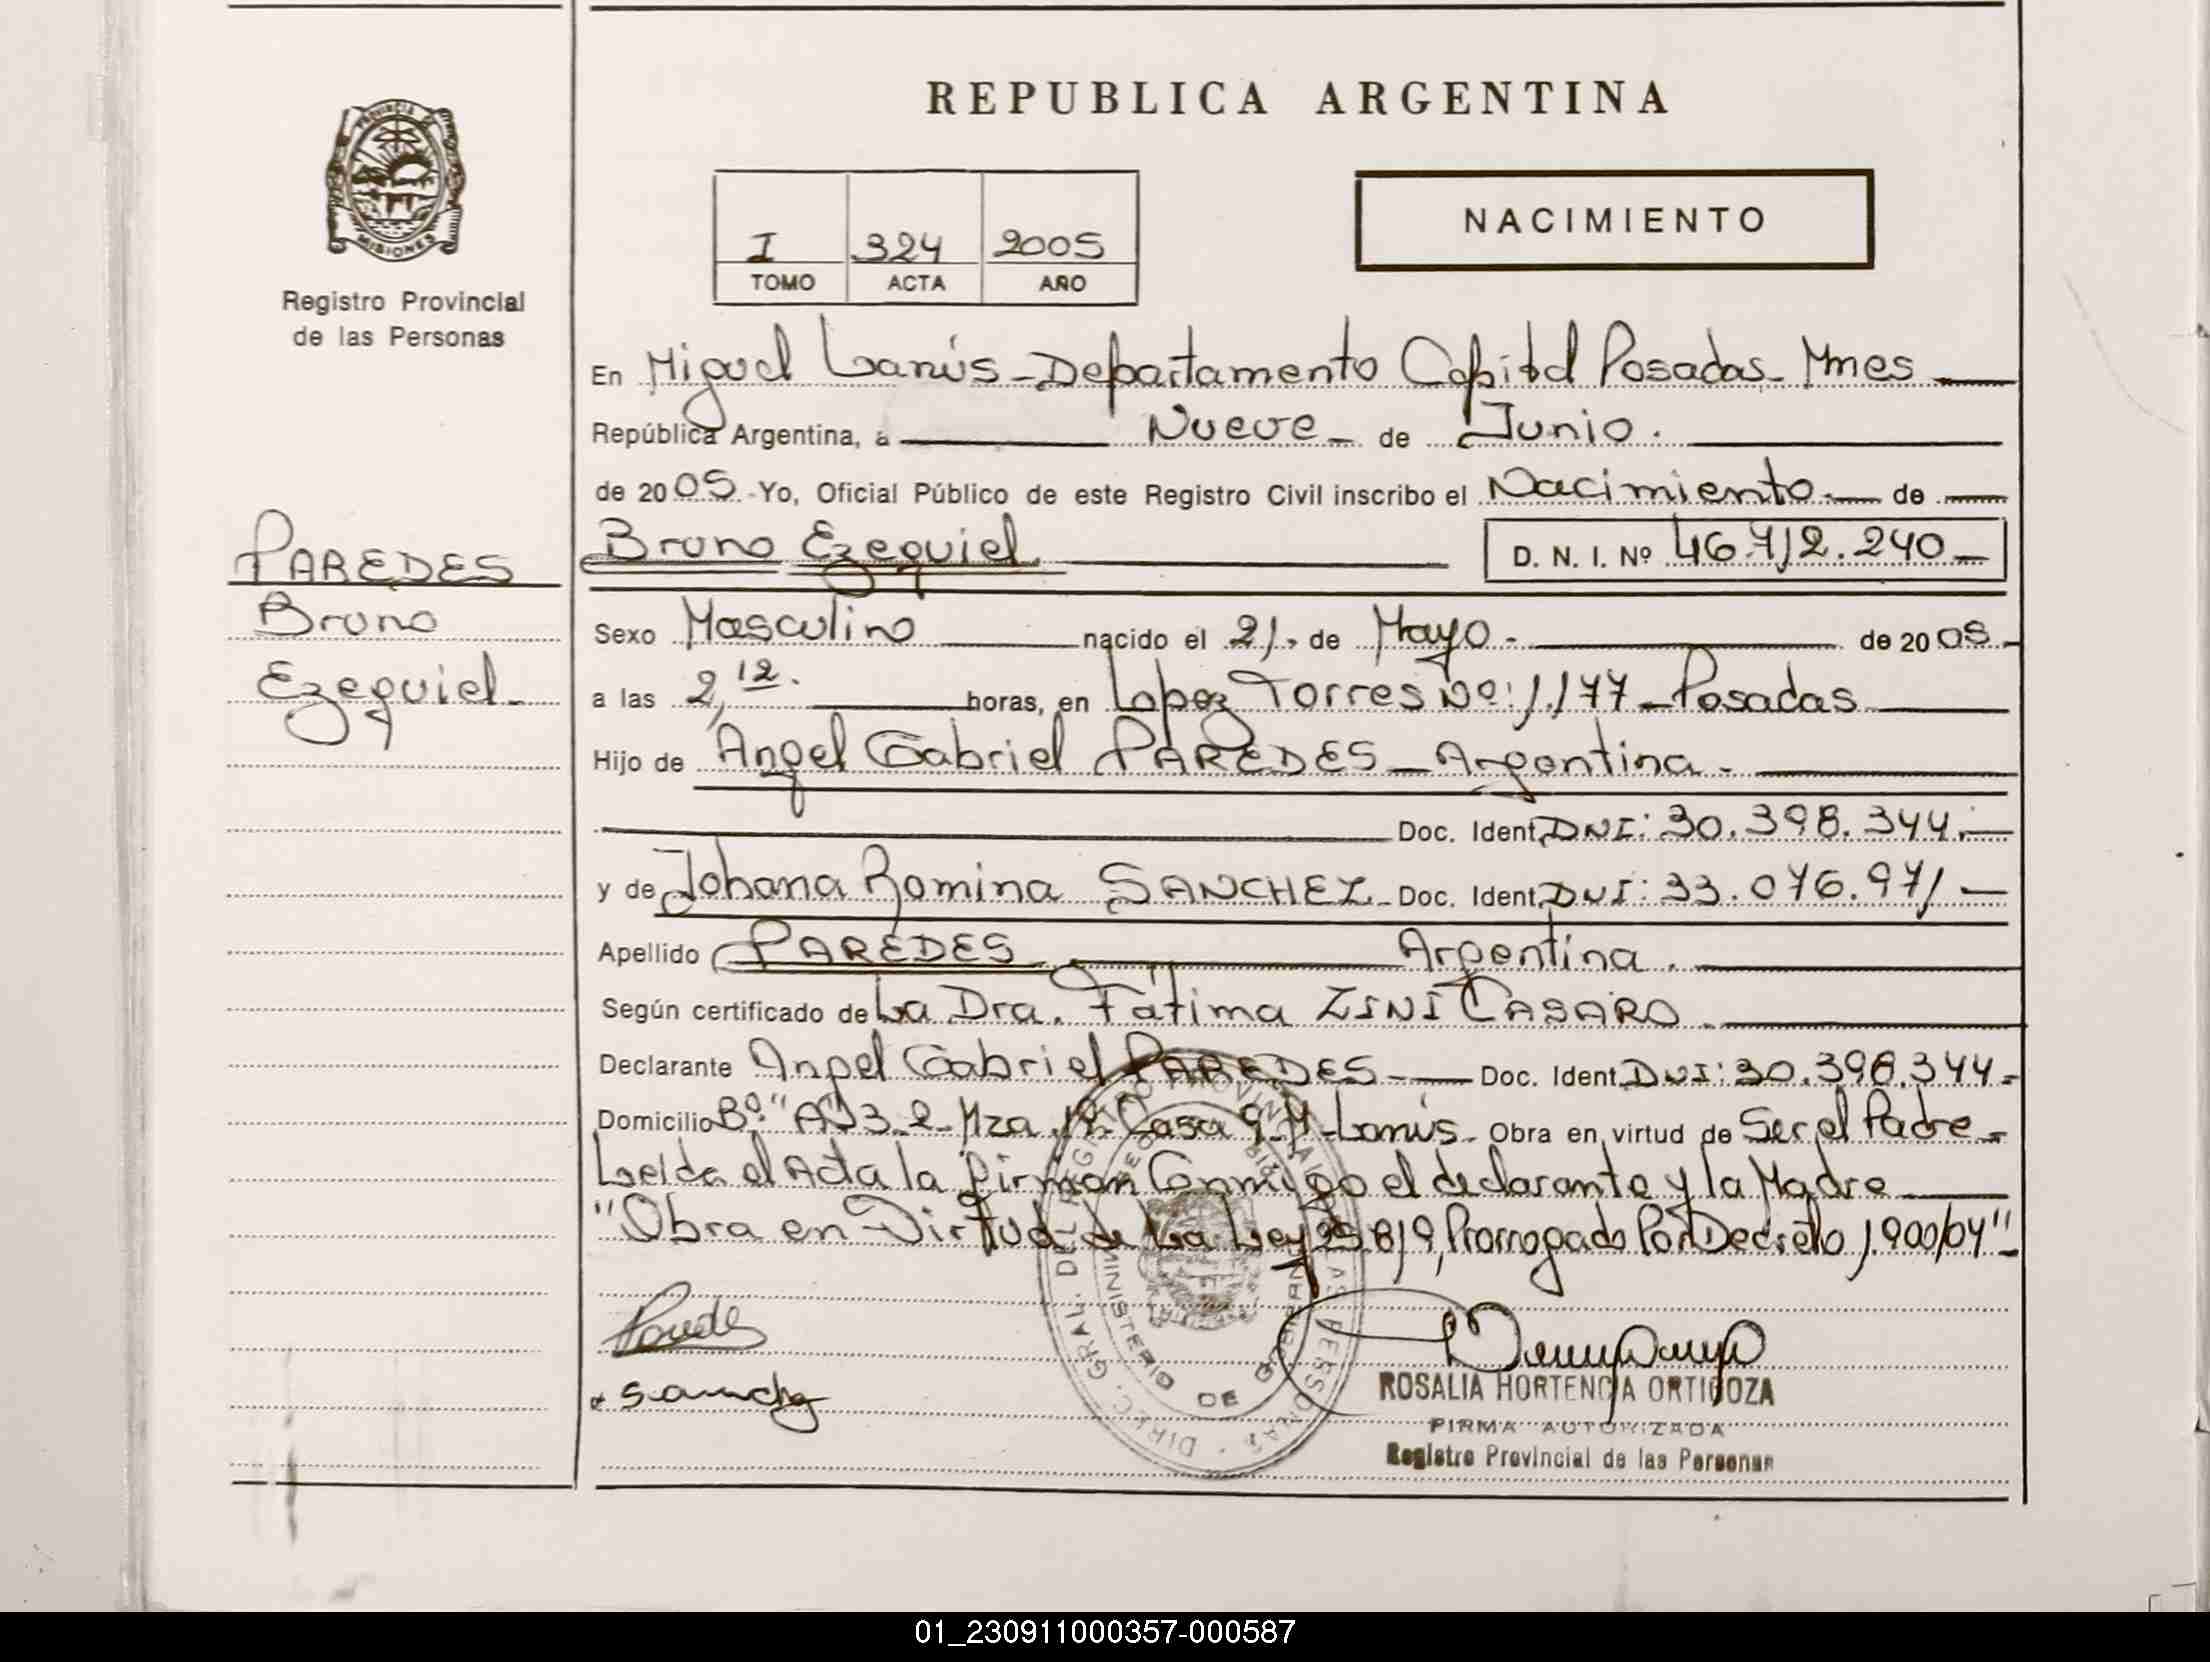 REPUBLICA ARGENTINA
PROVINCIA DE
MISIONES
Registro Provincial
de las Personas
I 324 2005
TOMO ACTA AÑO
NACIMIENTO
En Miguel Lanús - Departamento Capital Posadas - Mnes
República Argentina, a Nueve - de Junio.
de 2005 - Yo, Oficial Público de este Registro Civil inscribo el Nacimiento. de
PAREDES
Bruno
Ezequiel -
Bruno Ezequiel
D. N. I. Nº 46.712.240 -
Sexo Masculino nacido el 21. de Mayo - de 2005 -
a las 2,12. horas, en Lopez Torres Nº: 1.177 - Posadas
Hijo de Angel Gabriel PAREDES - Argentina -
Doc. Ident. DNI: 30.398.344.-
y de Johana Romina SANCHEZ - Doc. Ident. DNI: 33.076.971 -
Apellido PAREDES Argentina.
Según certificado de La Dra. Fátima ZINI CASARO
Declarante Angel Gabriel PAREDES - Doc. Ident. DNI: 30.398.344 -
Domicilio Bº. "A" 3.2 - Mza. Casa 9 - M - Lanús - Obra en virtud de Ser el Padre -
Leída el Acta la firman Conmigo el declarante y la Madre
"Obra en Virtud de La Ley 25.819, Prorrogado Por Decreto 1.900/04" -
Paredes
Sanchez
ROSALIA HORTENCIA ORTIGOZA
FIRMA AUTORIZADA
Registro Provincial de las Personas
DIREC. GRAL. DEL REGISTRO PROVINCIAL DE LAS PERSONAS
MINISTERIO DE GOBIERNO
01_230911000357-000587